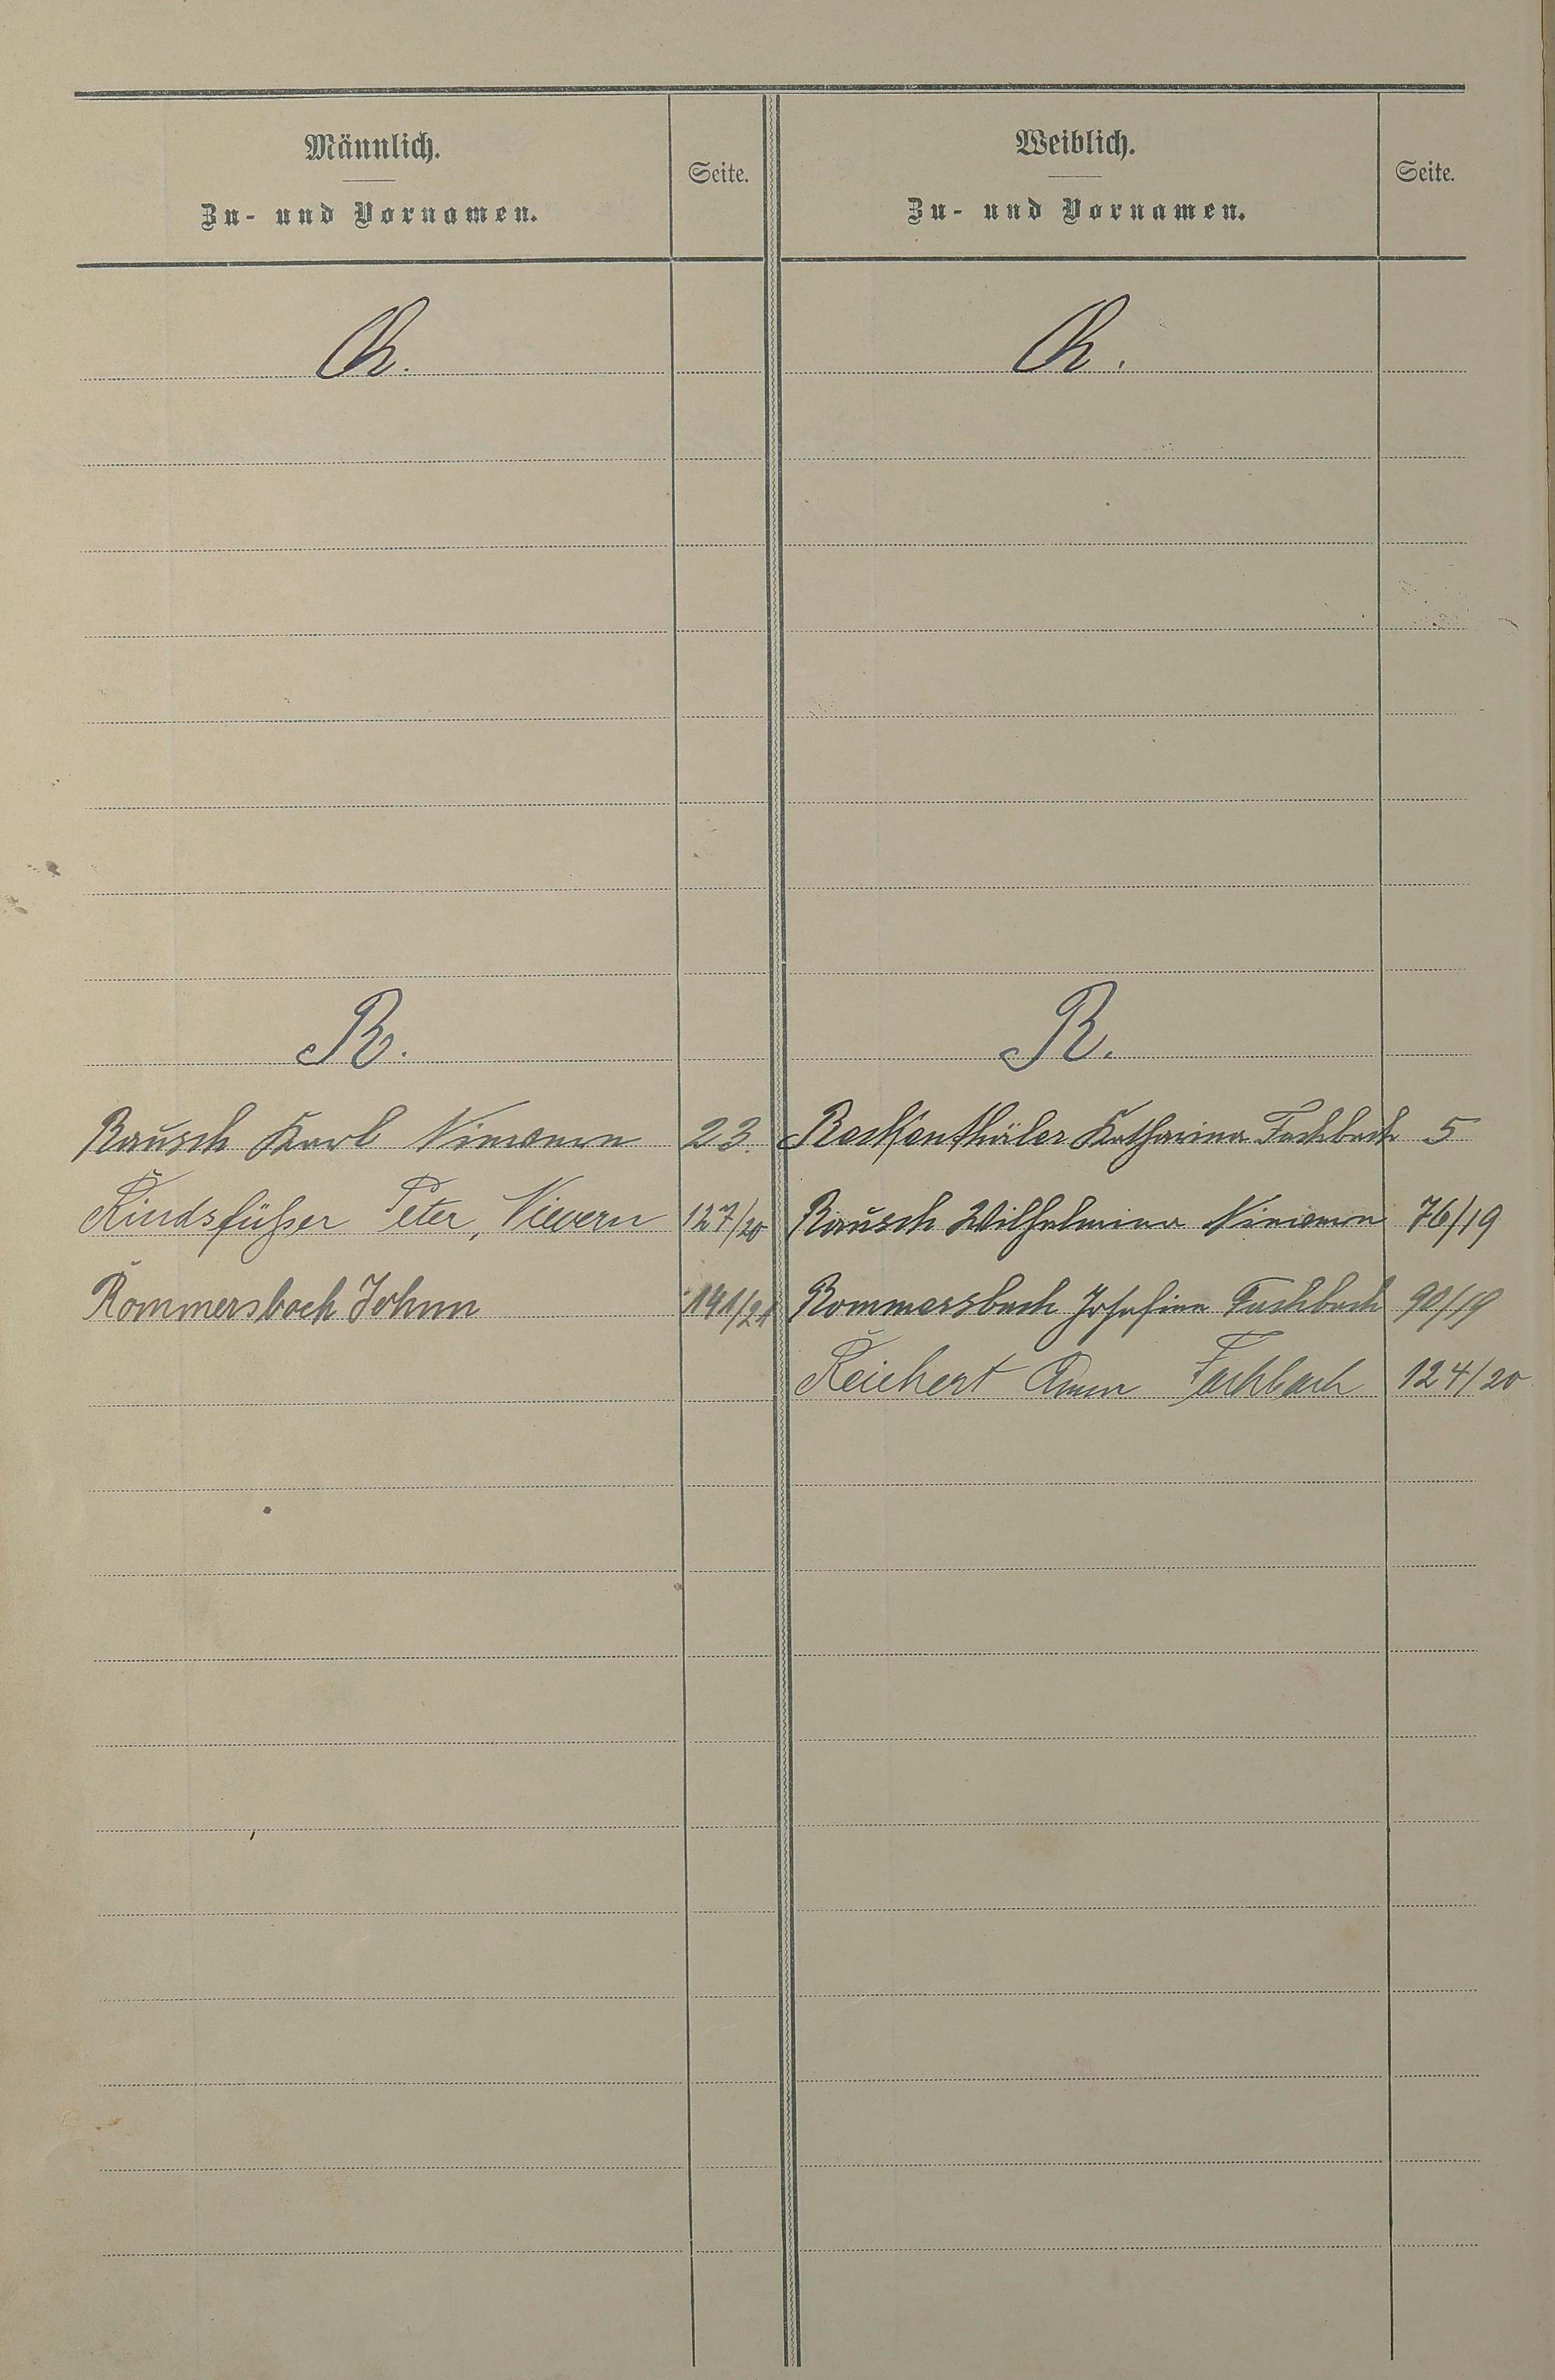 Männlich.
Zu- und Vornamen.
Seite.
Weiblich.
Zu- und Vornamen.
Seite.
Q.
Q.
R.
R.
Rausch Karl Nievern 23.
Katharina Fachbach 5
Rindsfüßer Peter, Nievern 127/20
Rausch Wilhelmina Nievern 76/19
Rommersbach Johann 141/21
Rommersbach Josefine Fachbach 90/19
Reichert Anna Fachbach 124/20